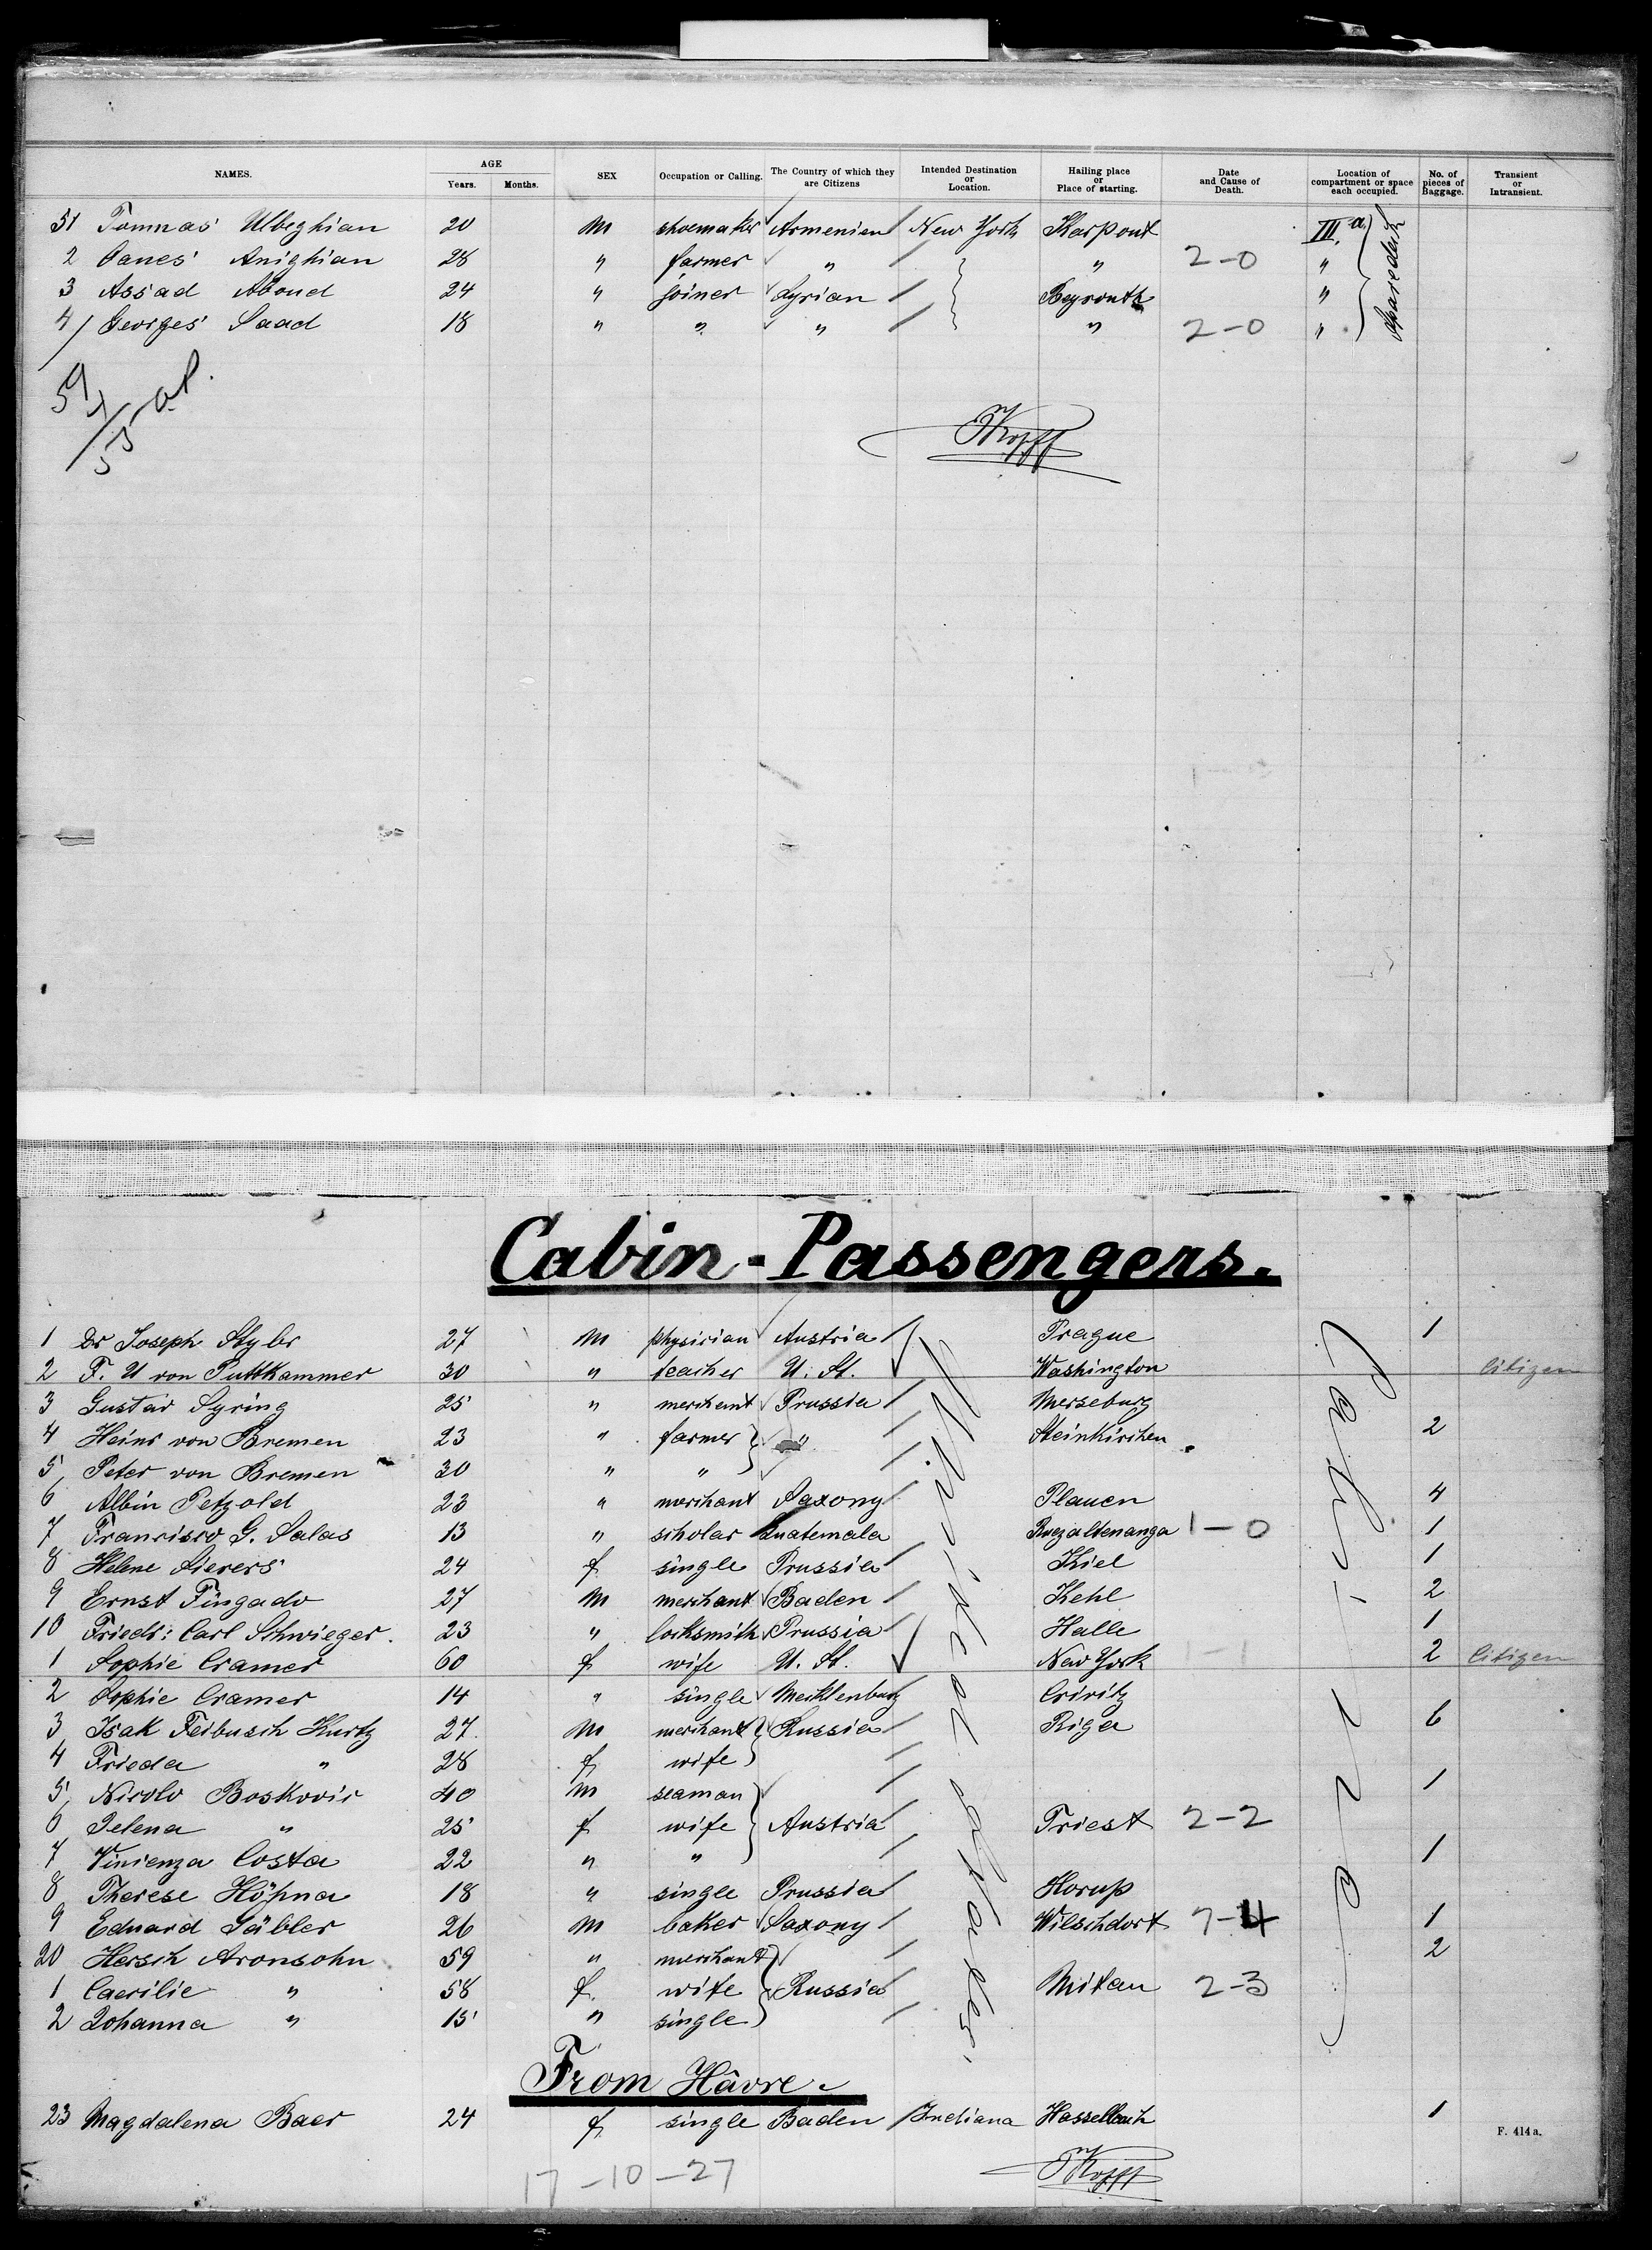 NAMES. AGE Years. Months. SEX Occupation or Calling. The Country of which they are Citizens Intended Destination or Location. Hailing place or Place of starting. Date and Cause of Death. Location of compartment or space each occupied. No. of pieces of Baggage. Transient or Intransient.
51 Tomnas Ulbeghian 20 M shoemaker Armenien New York Karpout III.a
2 Oanes Anighian 28 " farmer " " 2-0 "
3 Assad Aboud 24 " joiner Syrian Beyrouth "
4 Georges Saad 18 " " " " 2-0 "
Sparedeck
Kopff
Cabin-Passengers.
1 Dr Joseph Stybr 27 M physician Austria Prague 1
2 F. U von Puttkammer 30 " teacher U. St. Washington Citizen
3 Gustav Syring 25 " merchant Prussia Merseburg
4 Heinr von Bremen 23 " farmer " Steinkirchen 2
5 Peter von Bremen 30 " "
6 Albin Petzold 23 " merchant Saxony Plauen 4
7 Francisco G. Salas 13 " scholar Guatemala Quezaltenanga 1-0 1
8 Helene Sievers 24 f single Prussia Kiel 1
9 Ernst Fingado 27 M merchant Baden Kehl 2
10 Friedr: Carl Schwieger. 23 " locksmith Prussia Halle 1
1 Sophie Cramer 60 f wife U. St. New York 1-1 2 Citizen
2 Sophie Cramer 14 " single Mecklenburg Crivitz
3 Isak Feibusch Kurtz 27 M merchant Russia Riga 6
4 Frieda " 28 f wife
5 Nicolo Boskovic 40 M seaman 1
6 Jelena " 25 f wife Austria Triest 2-2
7 Vincenza Costa 22 " " 1
8 Therese Höpna 18 " single Prussia Horup
9 Eduard Säbler 26 M baker Saxony Wilschdorf 7-4 1
20 Hersch Aronsohn 59 " merchant 2
1 Caecilie " 58 f. wife Russia Mitau 2-3
2 Johanna " 15 " single
United States
Cabin
From Hâvre.
23 Magdalena Baer 24 f single Baden Indiana Hasselbach 1
F. 414a.
17-10-27
Kopff